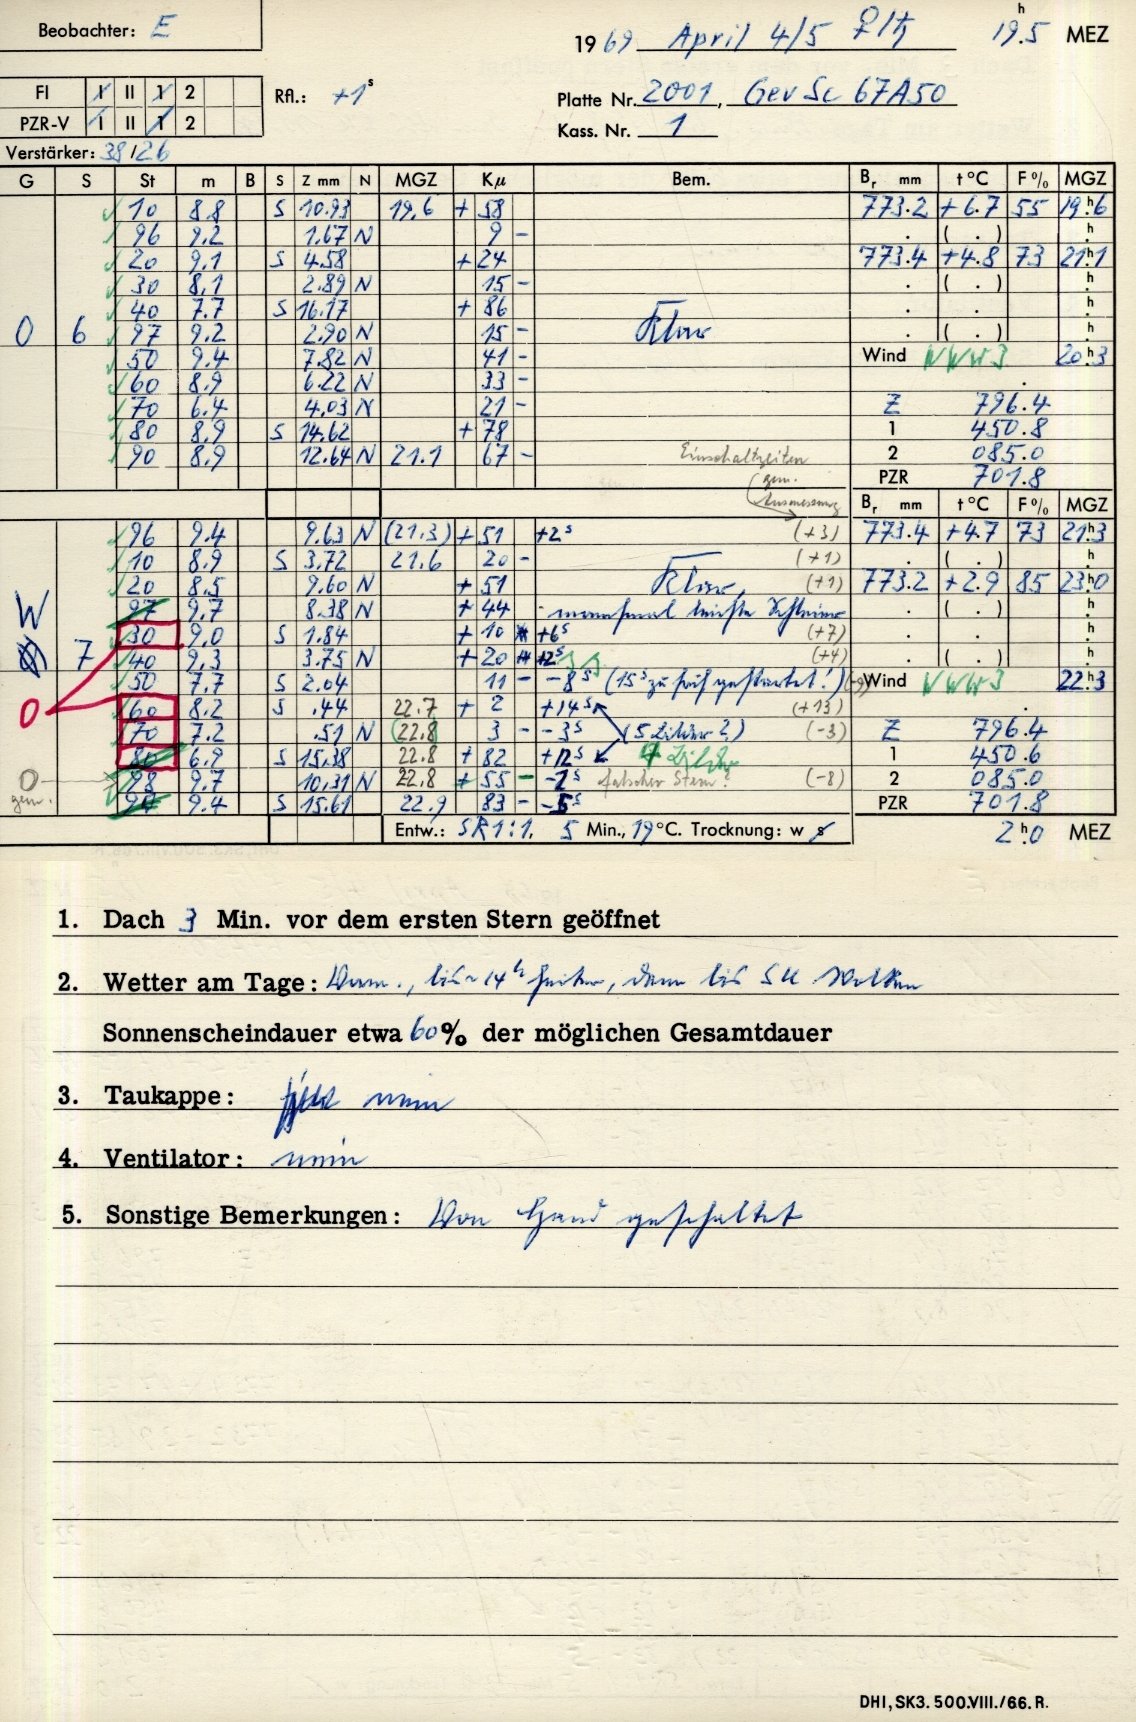 Beobachter: E
1969 April 4/5 ♀/♄ 19h.5 MEZ
FI I II 1 2
Rfl.: +1s
Platte Nr. 2001, Gev Sc 67A50
PZR-V I II 1 2
Kass. Nr. 1
Verstärker: 38/26
G S St m B S Z mm N MGZ Kμ Bem. Br mm t °C F % MGZ
10 8.8 S 10.93 19,6 + 58 773.2 +6.7 55 19h.6
96 9.2 1.67 N 9 - . ( . ) h.
20 9.1 S 4.58 +24 773.4 +4.8 73 21h.1
30 8.1 2.89 N 15 - . ( . ) h.
40 7.7 S 16.17 + 86 . . h.
0 6 97 9.2 2.90 N 15 - Klar . ( . ) h.
50 9.4 7.82 N 41 - Wind WWW3 20h.3
60 8.9 6.22 N 33 - .
70 6.4 4.03 N 21 - Z 796.4
80 8.9 S 14.62 + 78 1 450.8
90 8.9 12.64 N 21.1 67 - Einschaltzeiten 2 085.0
gem. PZR 701.8
Ausmessung Br mm t °C F % MGZ
96 9.4 9.63 N (21.3) + 51 +2s (+3) 773.4 +4.7 73 21h.3
10 8.9 S 3.72 21.6 20 - (+1) . ( . ) h.
20 8.5 9.60 N + 51 Klar, (+1) 773.2 +2.9 85 23h.0
W 97 9.7 8.38 N + 44 manchmal leichte Schleier . ( . ) h.
30 9.0 S 1.84 + 10 +6s (+7) . . h.
7 40 9.3 3.75 N + 20 +2s (+4) . ( . ) h.
50 7.7 S 2.04 11 - -8s (15s zu früh gestartet!) (-9) Wind WWW3 22h.3
0 60 8.2 S .44 22.7 + 2 +14s (+13) .
70 7.2 .51 N (22.8 3 - -3s (5 Zähler?) (-3) Z 796.4
80 6.9 S 15.38 22.8 + 82 +12s 4 Zähler 1 450.6
0 98 9.7 10.31 N 22.8 + 55 - -1s falscher Stern? (-8) 2 085.0
gem. 90 9.4 S 15.61 22.9 83 - -5s PZR 701.8
Entw.: SR1:1, 5 Min., 19°C. Trocknung: w s 2h.0 MEZ
1. Dach 3 Min. vor dem ersten Stern geöffnet
2. Wetter am Tage: Warm., bis ~ 14h heiter, dann bis SU Wolken
Sonnenscheindauer etwa 60% der möglichen Gesamtdauer
3. Taukappe: nein
4. Ventilator: nein
5. Sonstige Bemerkungen: Von Hand geschaltet
DHI, SK3. 500.VIII./66. R.